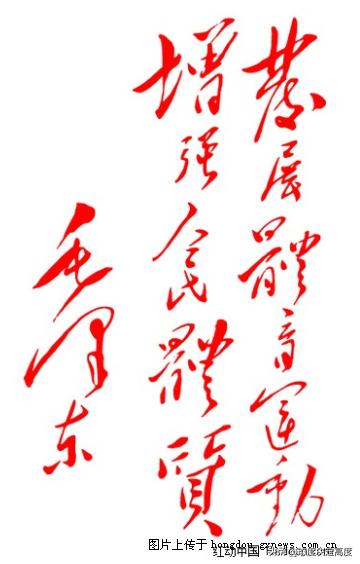 發展體育運動
增强人民體質
毛泽东
图片上传于 hongdou.gxnews.com.cn
红动中国